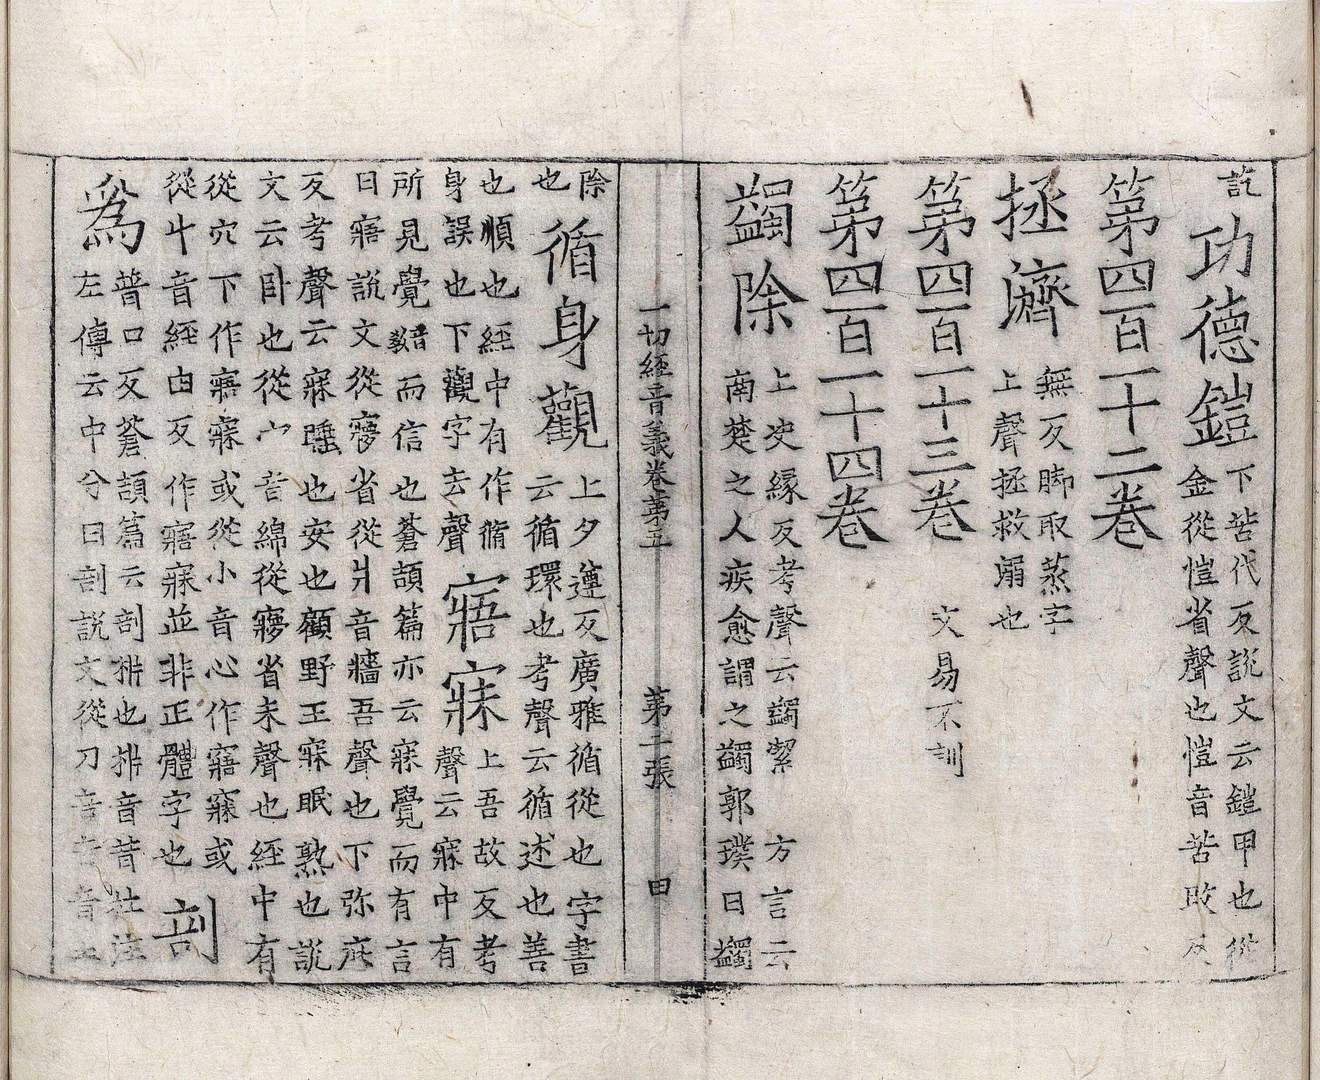 訖
功德鎧
下苦代反說文云鎧甲也從
金從愷省聲也愷音苦敗反
第四百一十二卷
拯濟
無反脚取蒸字
上聲拯救溺也
第四百一十三卷
文易不訓
第四百一十四卷
蠲除
上决緣反考聲云蠲潔 方言云
南楚之人疾愈謂之蠲郭璞曰蠲
一切經音義卷第五 第二張 田
除
也
循身觀
上夕遵反廣雅循從也字書
云循環也考聲云循述也善
也順也經中有作脩
身誤也下觀字去聲
寤寐
上吾故反考
聲云寐中有
所見覺音教而信也蒼頡篇亦云寐覺而有言
曰寤說文從㝱省從爿音牆吾聲也下弥庇
反考聲云寐睡也安也顧野王寐眠熟也說
文云卧也從宀音綿從㝱省未聲也經中有
從穴下作寤寐或從小音心作寤寐或
從廾音經由反作寤寐並非正體字也
剖
為
普口反蒼頡篇云剖拆也拆音昔杜注
左傳云中分曰剖說文從刀音